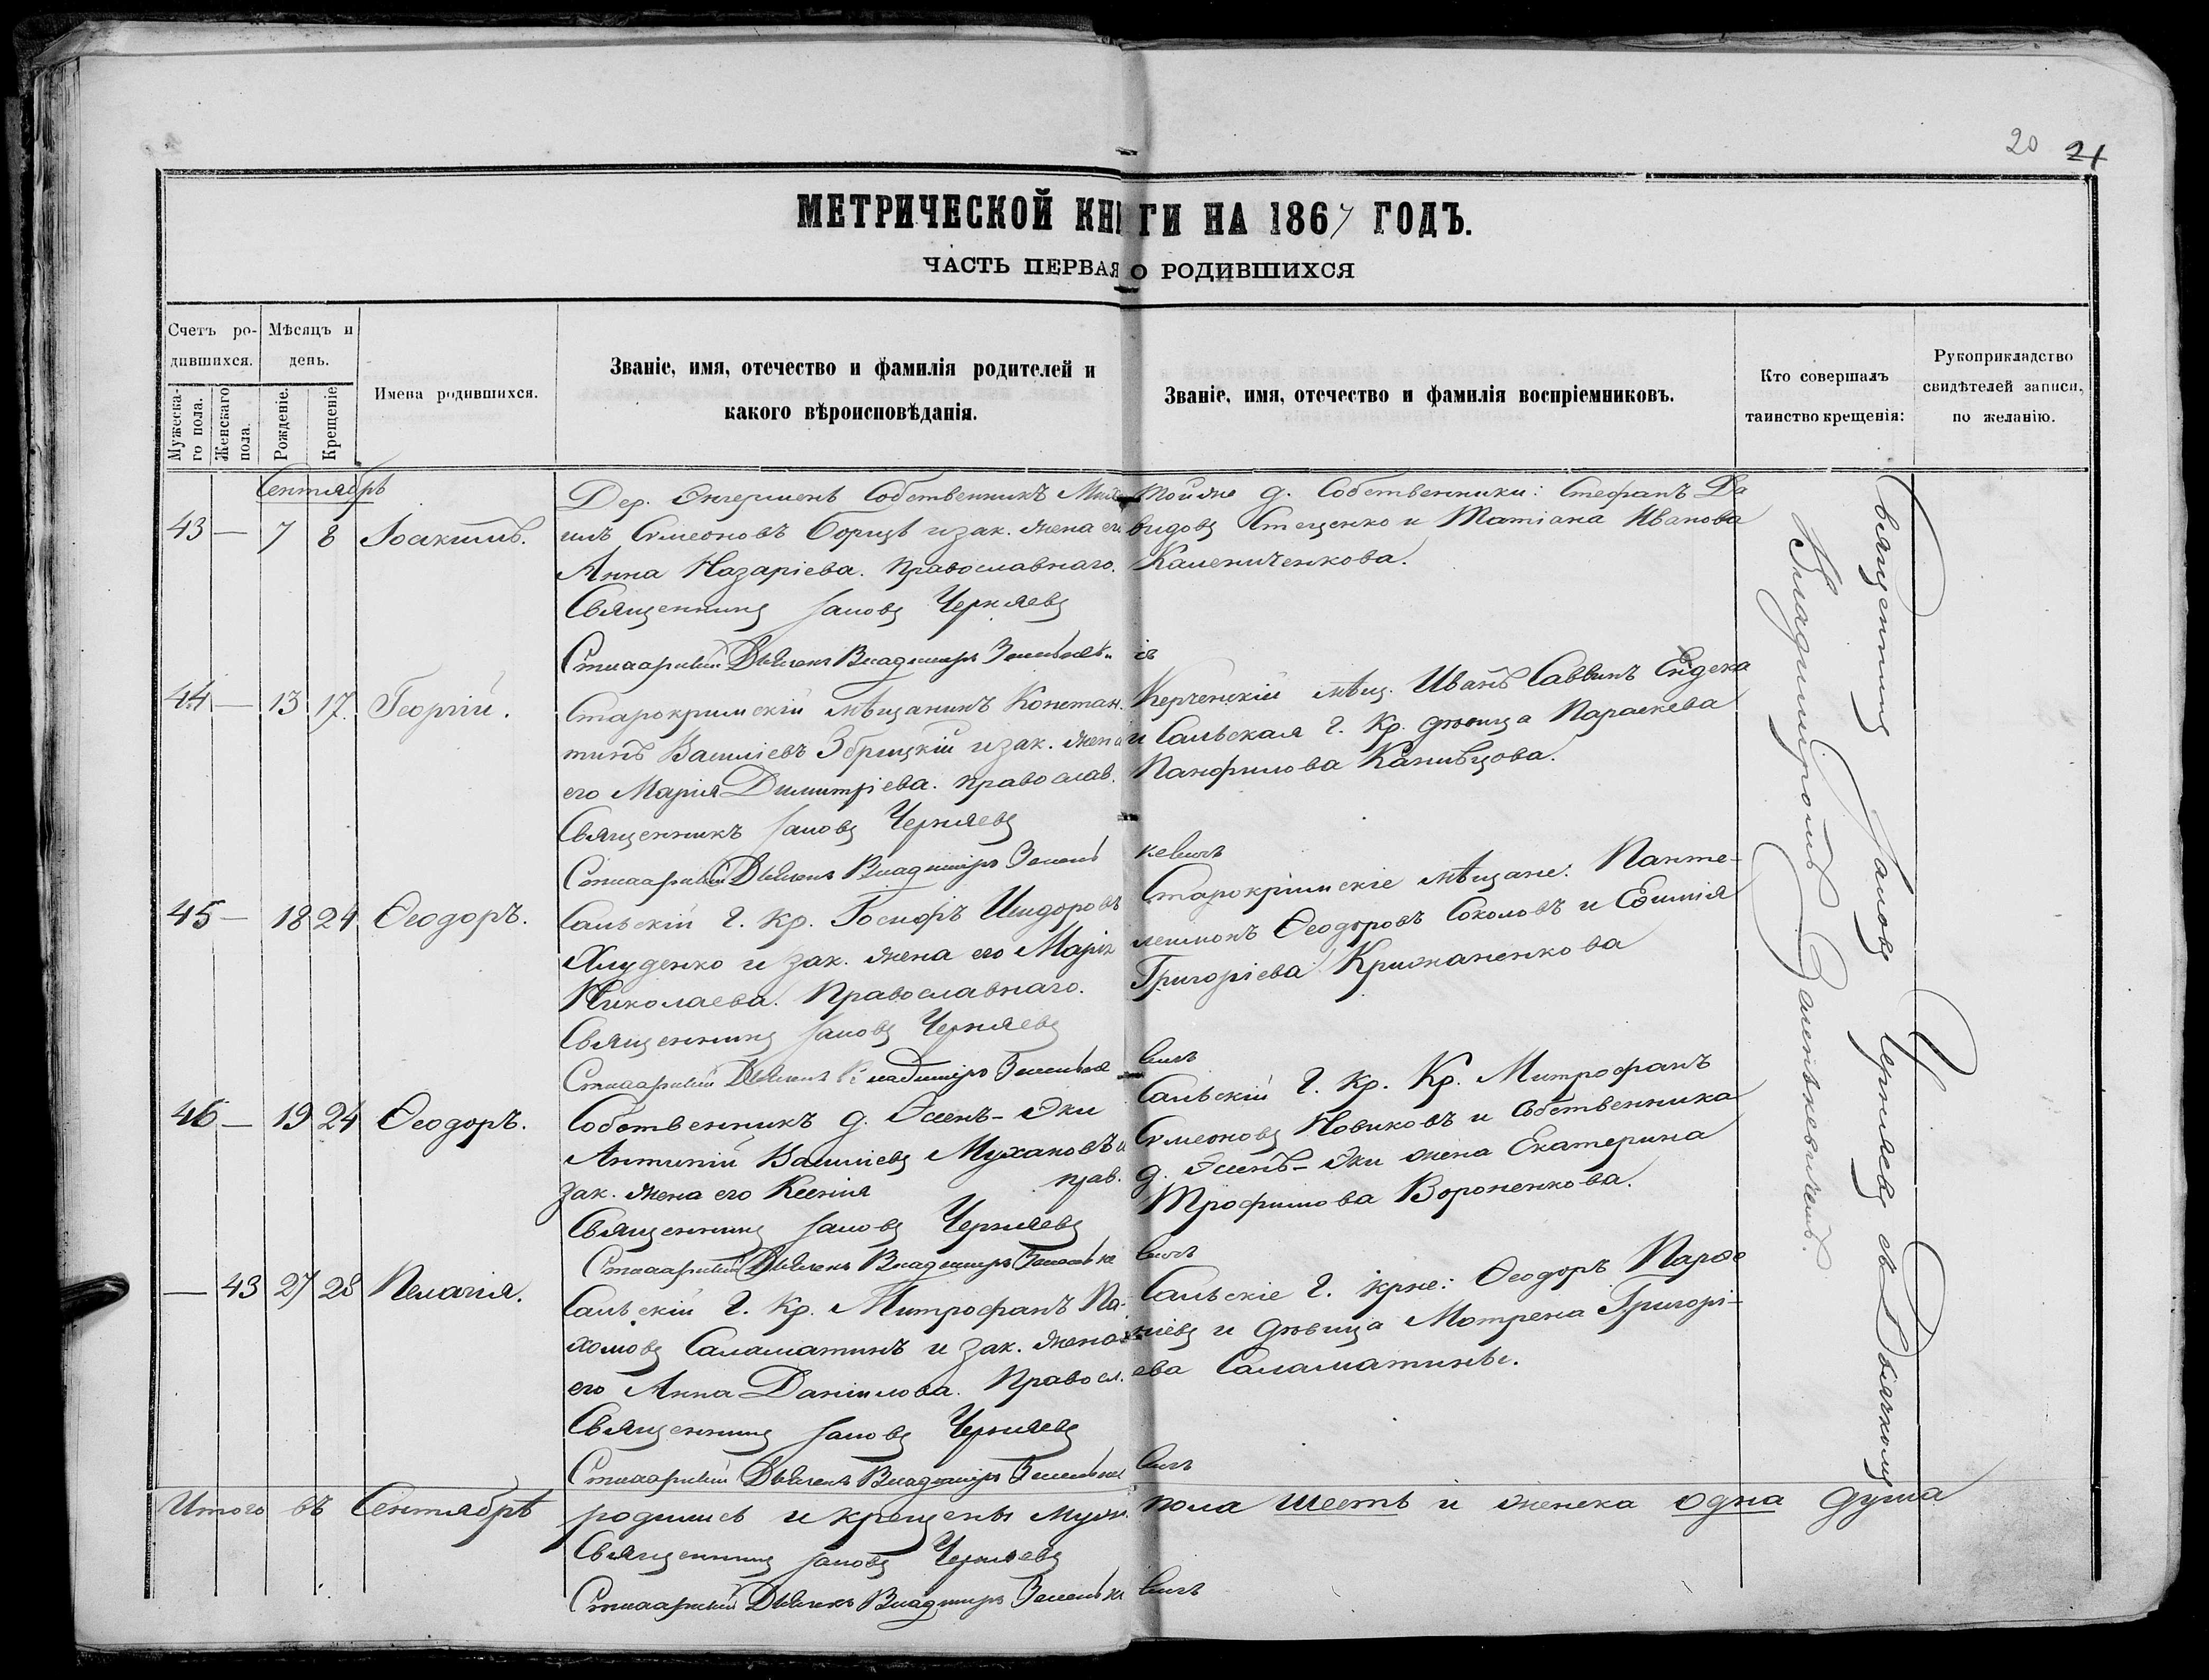 20 21
МЕТРИЧЕСКОЙ КНИГИ НА 1867 ГОДЪ.
ЧАСТЬ ПЕРВАЯ О РОДИВШИХСЯ
Счетъ ро-
дившихся.
Мужеска-
го пола.
Женскаго
пола.
Мѣсяцъ и
день.
Рожденіе.
Крещеніе
Имена родившихся.
Званіе, имя, отечество и фамилія родителей и
какого вѣроисповѣданія.
Званіе, имя, отечество и фамилія воспріемниковъ.
Кто совершалъ
таинство крещенія:
Рукоприкладство
свидѣтелей записи,
по желанію.
Сентябрь
43 — 7 8 Іоакимъ.
Дер. собственникъ
Сумеоновъ и зак. жена его
Анна Назаріева. Православнаго.
Священникъ Іаковъ Черняевъ
Стихарный Дьячекъ Владиміръ
Тойже д. Собственники: Стефанъ Да
видовъ Стеценко и Татіана Иванова
Каленитенкова.
44 — 13 17 Георгій.
Старокрымскій мѣщанинъ Констан-
тинъ Василіевъ Збрицкій и зак. жена
его Марія Димитріева. православ.
Священникъ Іаковъ Черняевъ
Стихарный Дьячекъ Владиміръ Зелень
кевичъ
Керченскій мѣщ. Иванъ Саввинъ
и Сальская г. кр. дѣвица Параскева
Панфилова Канивцова.
45 — 18 24 Ѳеодоръ.
Сальскій г. кр. Іосифъ Исидоровъ
Хлуденко и зак. жена его Марія
Николаева. Православнаго.
Священникъ Іаковъ Черняевъ
Стихарный Дьячекъ Владиміръ Зеленьке
вичъ
Старокрымскіе мѣщане: Панте-
леимонъ Ѳеодоровъ Соколовъ и
Григоріева Крижаненкова
46 — 19 24 Ѳеодоръ.
Собственникъ д. Эки
Антипій Василіевъ Мухановъ и
зак. жена его Ксенія прав.
Священникъ Іаковъ Черняевъ
Стихарный Дьячекъ Владиміръ Зеленьке
вичъ
Сальскій г. кр. Кр. Митрофанъ
Сумеоновъ Новиковъ и Собственника
д. Эки жена Екатерина
Трофимова Вороненкова.
— 43 27 28 Пелагія.
Сальскій г. кр. Митрофанъ Па-
хомовъ Саламатинъ и зак. жена
его Анна Даніилова. Правосл.
Священникъ Іаковъ Черняевъ
Стихарный Дьячекъ Владиміръ Зеленьке
вичъ
Сальскіе г. крне: Ѳеодоръ
и дѣвица Мотрена Григорі-
ева Саламатины.
Священникъ Іаковъ Черняевъ съ Дьячкомъ
Владиміромъ Зеленькевичемъ.
Итого въ Сентябрѣ родились и крещены муж. пола шесть и женска одна душа
Священникъ Іаковъ Черняевъ
Стихарный Дьячекъ Владиміръ Зеленьке
вичъ